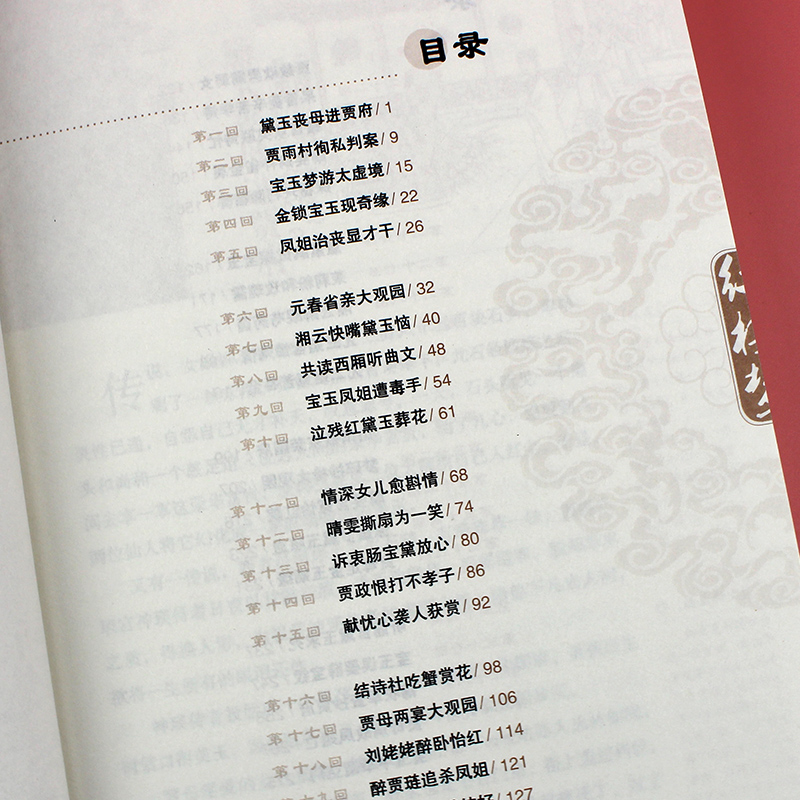 目录
第一回 黛玉丧母进贾府/1
第二回 贾雨村徇私判案/9
第三回 宝玉梦游太虚境/15
第四回 金锁宝玉现奇缘/22
第五回 凤姐治丧显才干/26
第六回 元春省亲大观园/32
第七回 湘云快嘴黛玉恼/40
第八回 共读西厢听曲文/48
第九回 宝玉凤姐遭毒手/54
第十回 泣残红黛玉葬花/61
第十一回 情深女儿愈斟情/68
第十二回 晴雯撕扇为一笑/74
第十三回 诉衷肠宝黛放心/80
第十四回 贾政恨打不孝子/86
第十五回 献忧心袭人获赏/92
第十六回 结诗社吃蟹赏花/98
第十七回 贾母两宴大观园/106
第十八回 刘姥姥醉卧怡红/114
第十九回 醉贾琏追杀凤姐/121
127
红楼梦